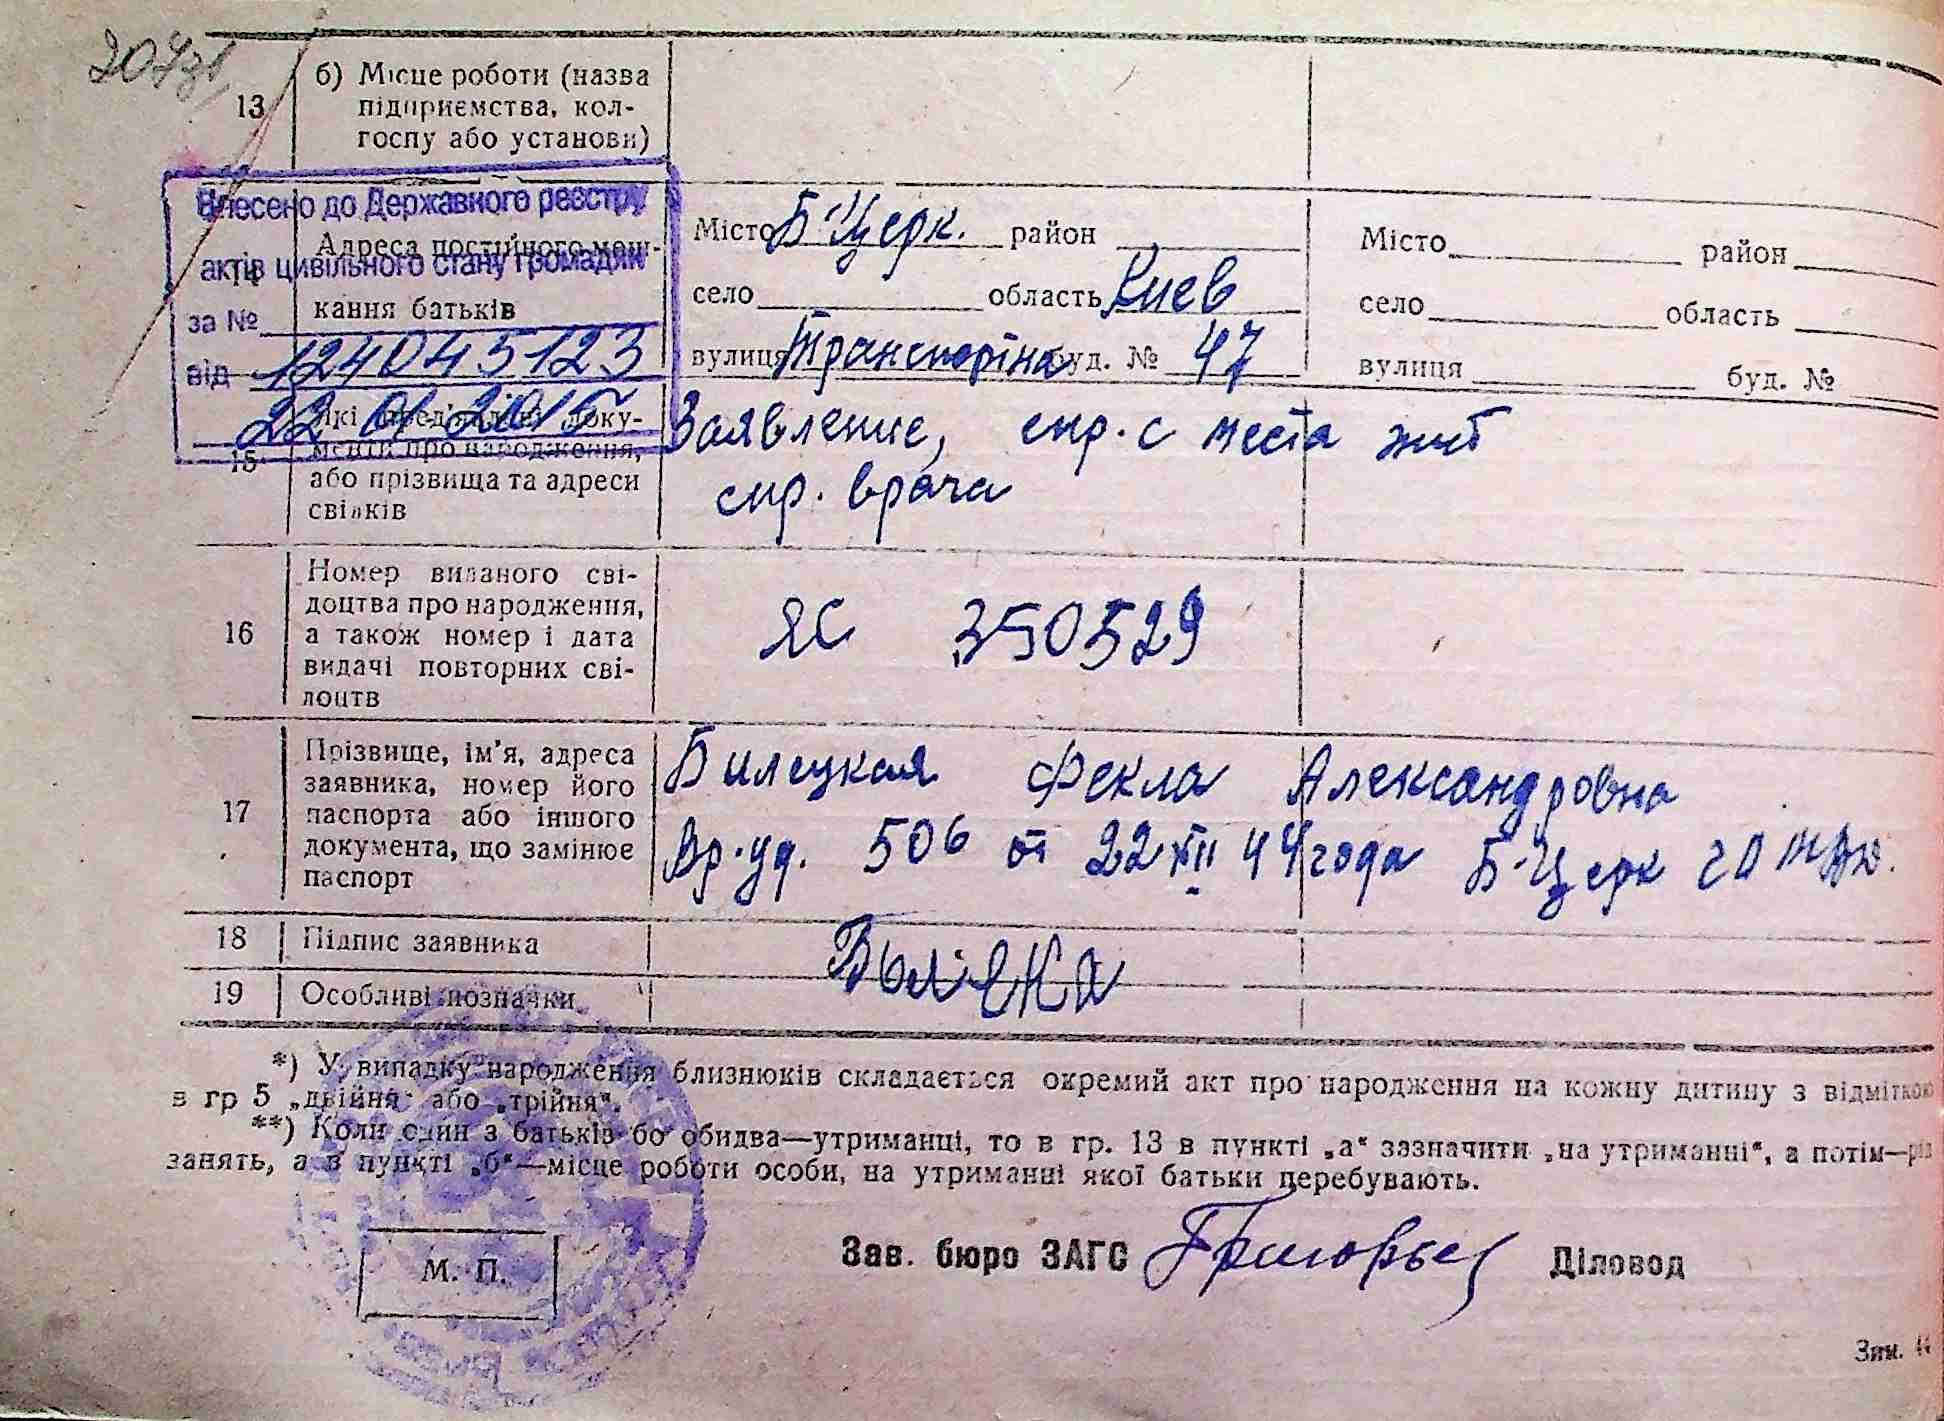 13
б) Місце роботи (назва
підприємства, кол-
госпу або установи)
Внесено до Державного реєстру
актів цивільного стану громадян
за №
від 124045123
22 01 2015
14
Адреса постійного меш-
кання батьків
Місто Б-Церк. район
село область Киев
вулиця буд. № 47
Місто район
село область
вулиця буд. №
15
Які пред'явлені доку-
менти про народження,
або прізвища та адреси
свідків
Заявление, спр. с места жит
спр. врача
16
Номер виданого сві-
доцтва про народження,
а також номер і дата
видачі повторних сві-
доцтв
ЯС 350529
17
Прізвище, ім'я, адреса
заявника, номер його
паспорта або іншого
документа, що замінює
паспорт
Билецкая Фекла Александровна
Вр. уд. 506 от 22 XII 44 года Б-Церк
18 Підпис заявника
19 Особливі позначки
*) У випадку народження близнюків складається окремий акт про народження на кожну дитину з відміткою
в гр 5 „двійня" або „трійня".
**) Коли один з батьків бо обидва—утриманці, то в гр. 13 в пункті „а" зазначити „на утриманні", а потім—рід
занять, а в пункті „б"—місце роботи особи, на утриманні якої батьки перебувають.
М. П.
Зав. бюро ЗАГС Діловод
Зам.